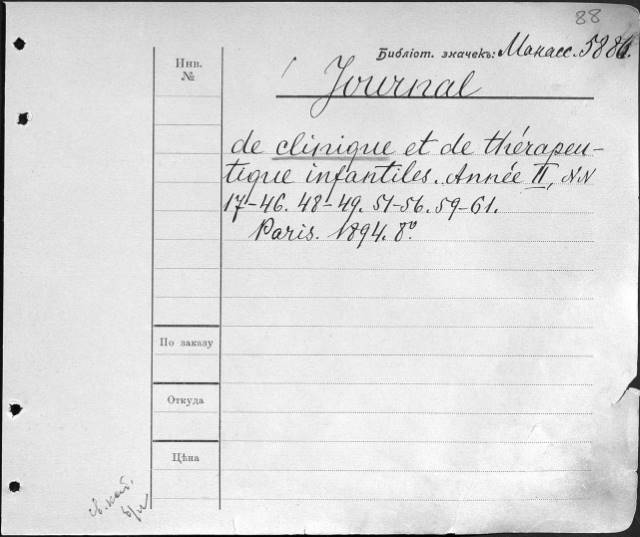 88
Библіот. значекъ: Макасс. 5886.
Инв.
№
Journal
de clinique et de thérapeu-
tique infantiles. Année II, NN
17-46. 48-49. 51-56. 59-61.
Paris. 1894. 8º.
По заказу
Откуда
Цѣна